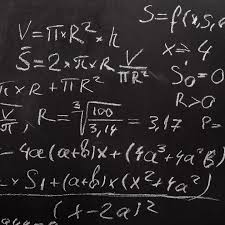 V=π×R²×h
S=f(x,S,
S=2×π×R V/πR²
x→4
S₀=0
×R+πR²
R>0
V/π, R=³√(100/3,14)=3,17
P=
-4a(a+b)x+(4a³+4a²b
×S₁+(a+b)x(x²+4a²)
(x-2a)²